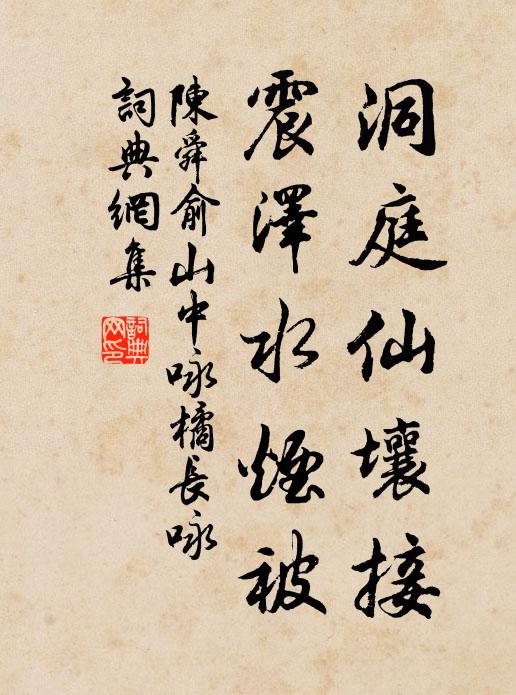 洞庭仙壤接
震澤水煙被
陳舜俞山中咏橘長咏
詞典網集
詞典網印